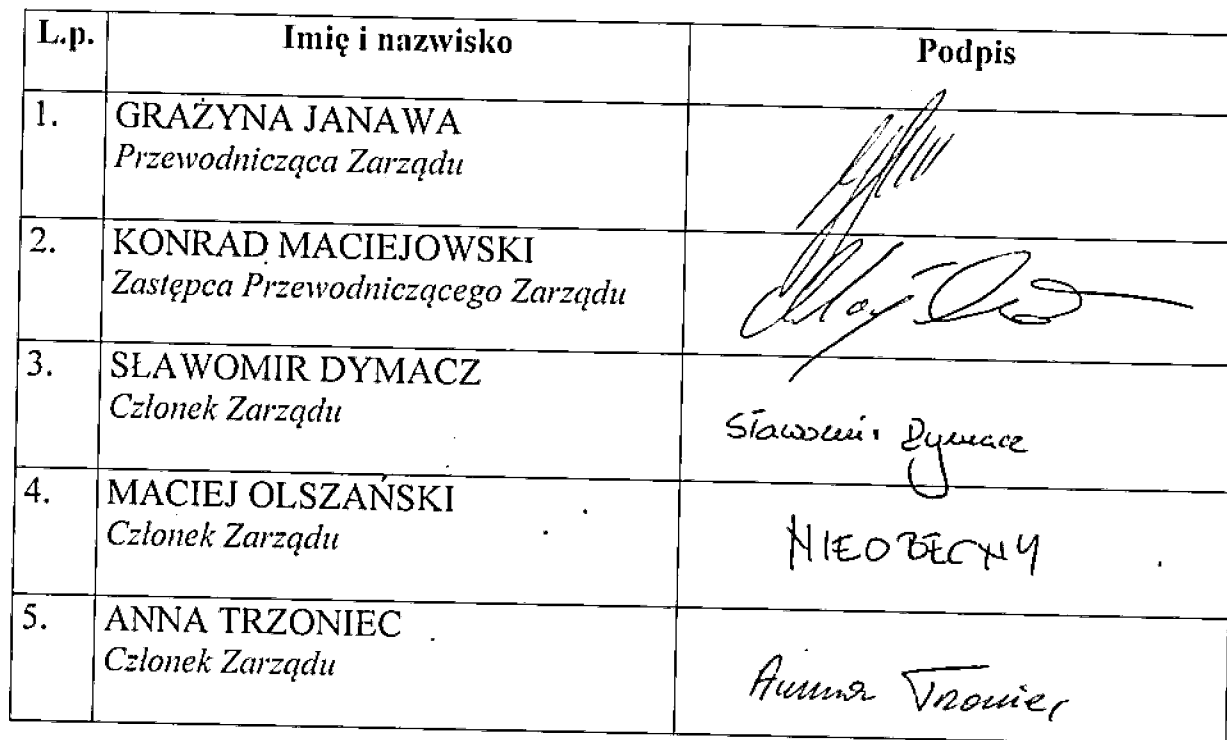 L.p. Imię i nazwisko Podpis
1. GRAŻYNA JANAWA
Przewodnicząca Zarządu
2. KONRAD MACIEJOWSKI
Zastępca Przewodniczącego Zarządu
3. SŁAWOMIR DYMACZ
Członek Zarządu
Sławomir Dymacz
4. MACIEJ OLSZAŃSKI
Członek Zarządu
NIEOBECNY
5. ANNA TRZONIEC
Członek Zarządu
Anna Trzoniec